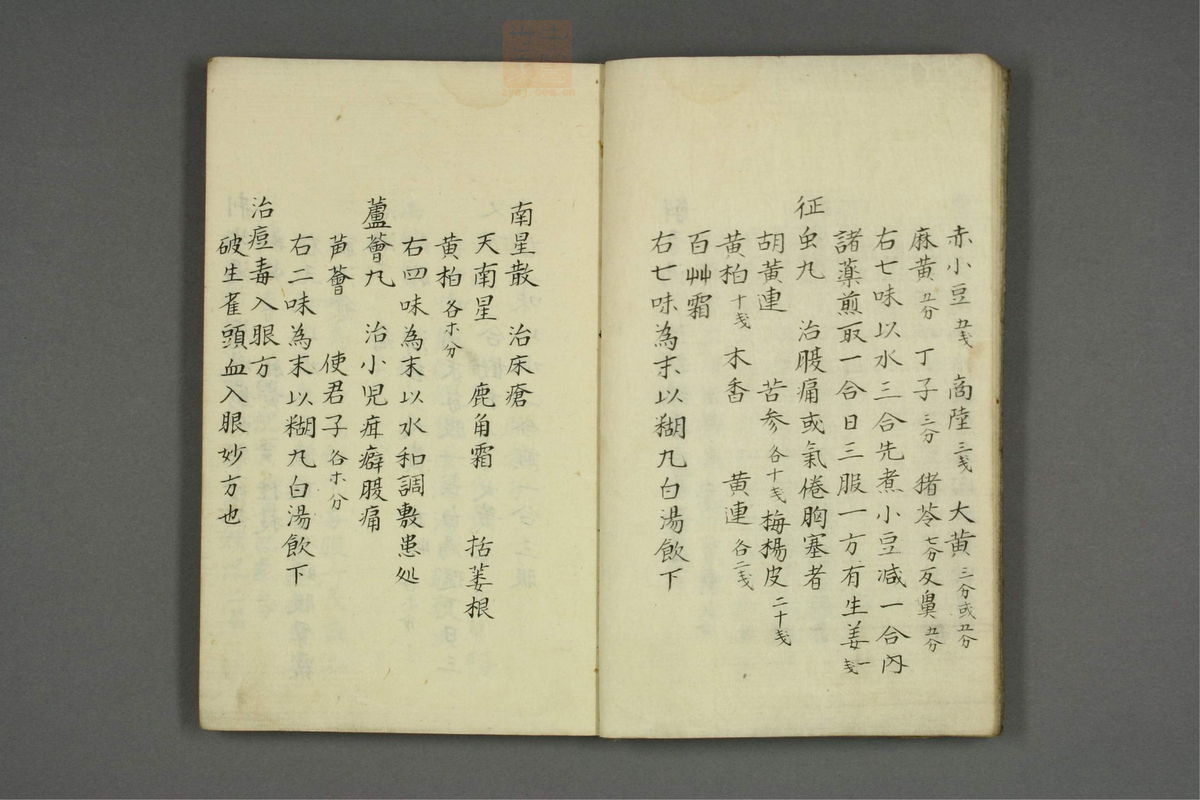 赤小豆 五戔 商陸 三戔 大黄 三分或五分
麻黄 五分 丁子 三分 猪苓 七分 反鼻 五分
右七味以水三合先煮小豆减一合内
諸薬煎取一合日三服一方有生姜一戔
征虫丸 治腹痛或氣倦胸塞者
胡黄連 苦参 各十戔 梅楊皮 二十戔
黄柏 十戔 木香 黄連 各二戔
百艸霜
右七味為末以糊丸白湯飲下
南星散 治床瘡
天南星 鹿角霜 括蒌根
黄柏 各ホ分
右四味為末以水和調敷患処
蘆薈丸 治小児疳癖腹痛
芦薈 使君子 各ホ分
右二味為末以糊丸白湯飲下
治痘毒入眼方
破生雀頭血入眼妙方也